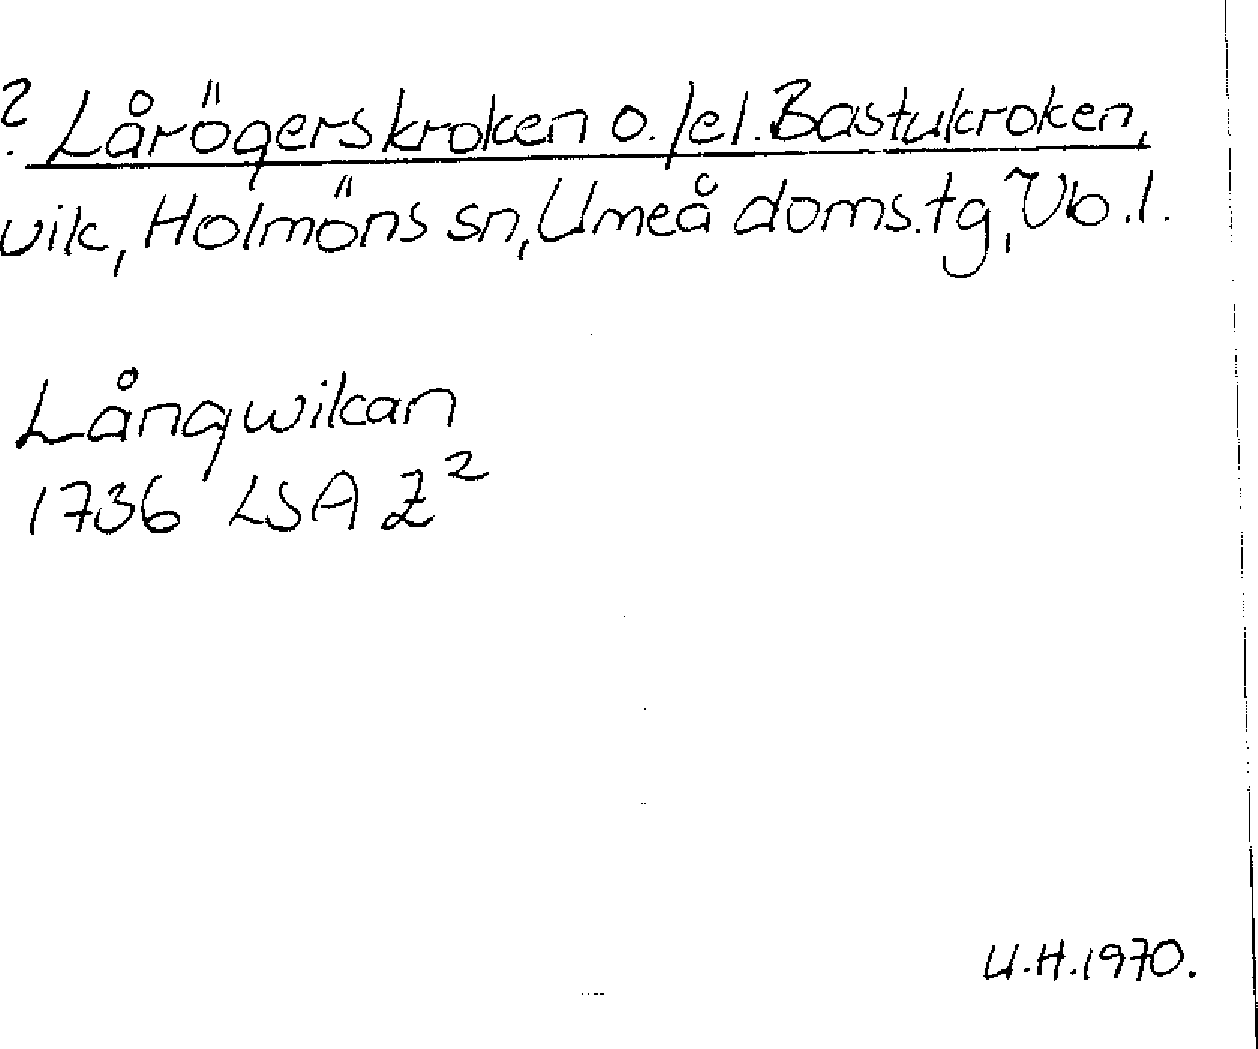 ? Lårögerskroken o./el. Bastukroken,
vik, Holmöns sn, Umeå doms.tg, Vb.l.
Långwikan
1736 LSA Z²
U.H.1970.